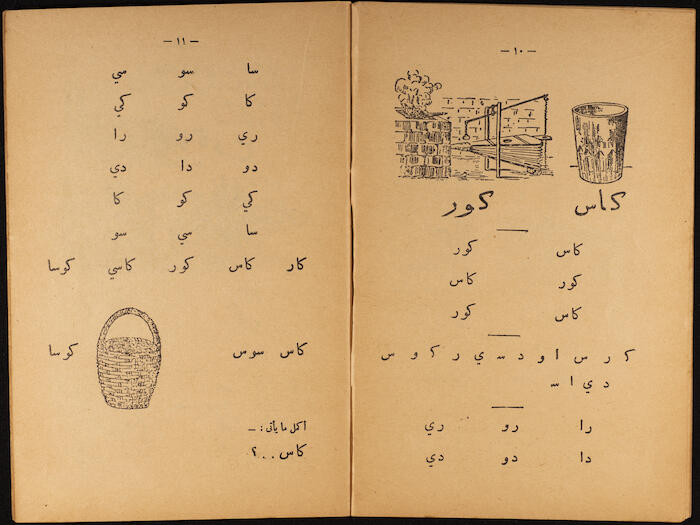 – ١٠ –
كاس كور
كاس كور
كور كاس
كاس كور
كـ ر س ا و د سـ ي ر كـ و س
د ي ا سـ
را رو ري
دا دو دي
– ١١ –
سا سو سي
كا كو كي
ري رو را
دو دا دي
كي كو كا
سا سي سو
كار كاس كور كاسي كوسا
كاس سوس كوسا
اكمل ما يأتى : –
كاس . . ؟